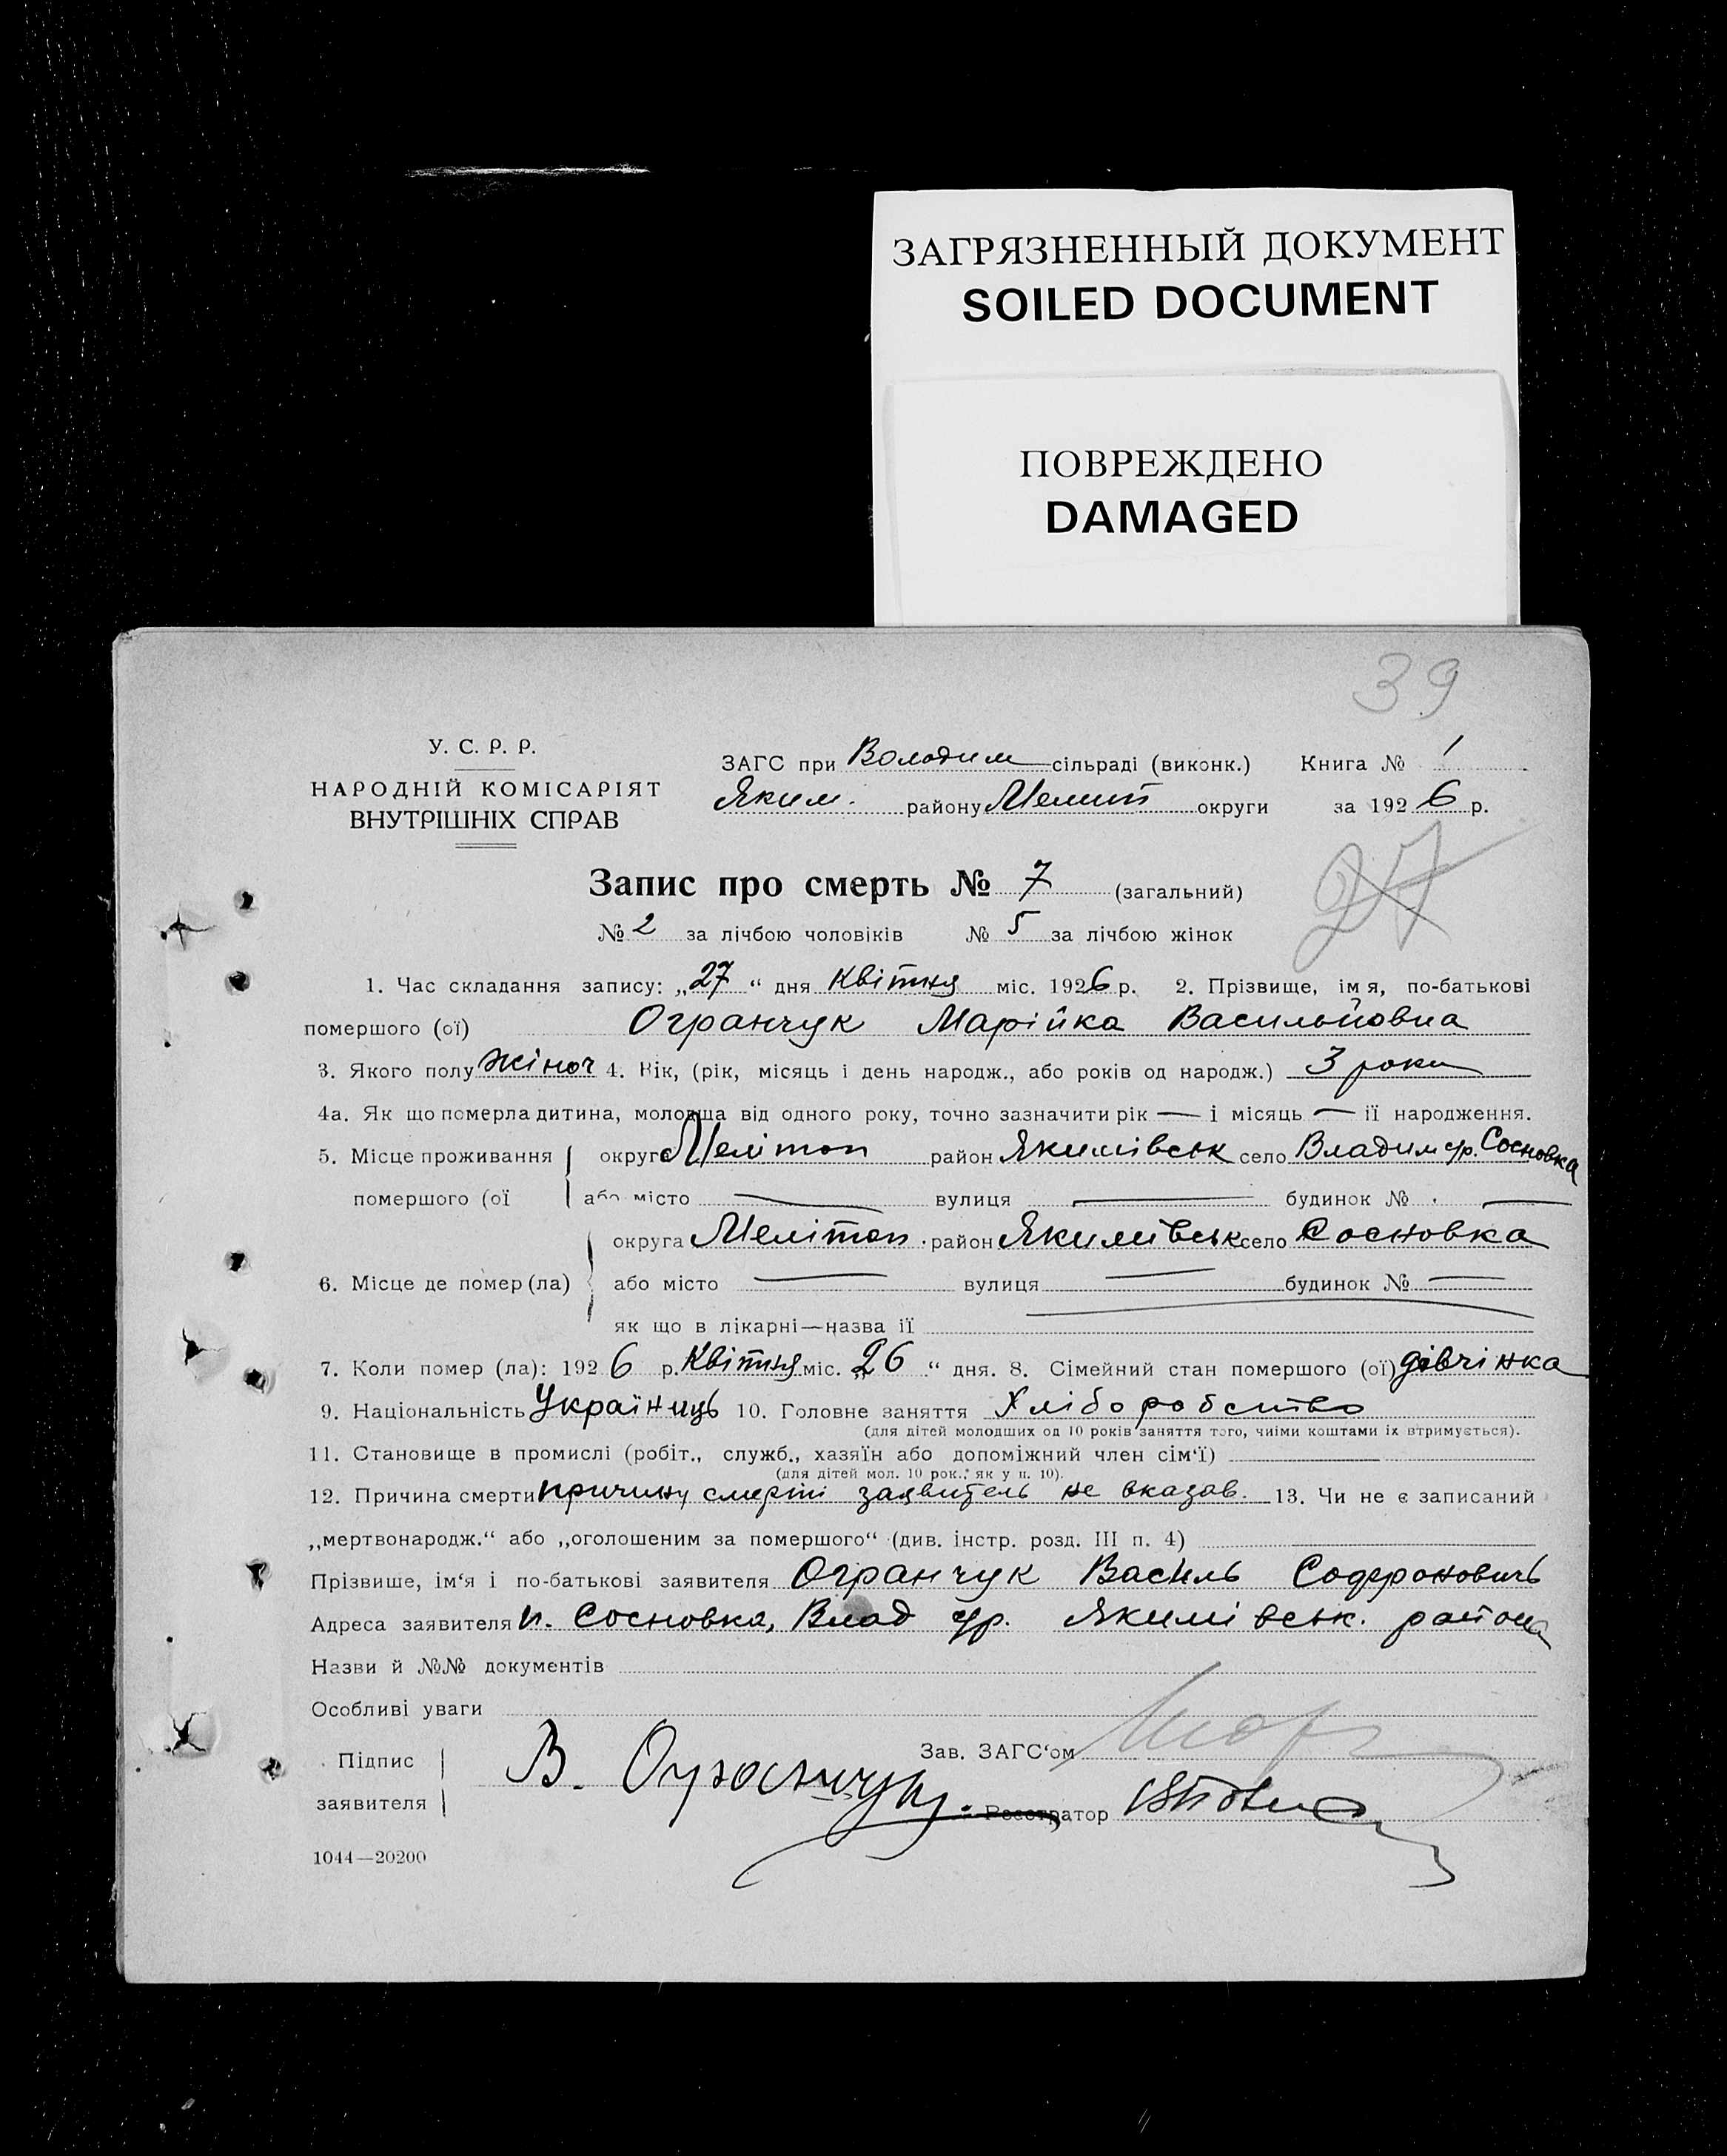 ЗАГРЯЗНЕННЫЙ ДОКУМЕНТ
SOILED DOCUMENT
ПОВРЕЖДЕНО
DAMAGED
39
У. С. Р. Р.
НАРОДНІЙ КОМІСАРІЯТ
ВНУТРІШНІХ СПРАВ
ЗАГС при Володим сільраді (виконк.) Книга № 1
Яким. району Мелит округи за 1926 р.
27
Запис про смерть № 7 (загальний)
№ 2 за лічбою чоловіків № 5 за лічбою жінок
1. Час складання запису: „27“ дня Квітня міс. 1926 р. 2. Прізвище, ім'я, по-батькові
помершого (ої) Огранчук Марійка Васильовна
3. Якого полу Жіноч 4. Вік, (рік, місяць і день народж., або років од народж.) 3 роки
4а. Як що померла дитина, молодша від одного року, точно зазначити рік — і місяць — її народження.
5. Місце проживання округа Мелітоп район Якимівськ село Владим ср. Сосновка
помершого (ої або місто — вулиця — будинок № —
округа Мелітоп. район Якимівськ село Сосновка
6. Місце де помер (ла) або місто — вулиця — будинок № —
як що в лікарні—назва її —
7. Коли помер (ла): 1926 р. Квітня міс. „26“ дня. 8. Сімейний стан помершого (ої) дівчінка
9. Національність Українць 10. Головне заняття Хліборобство
(для дітей молодших од 10 років заняття того, чиїми коштами їх втримується).
11. Становище в промислі (робіт., служб., хазяїн або допоміжний член сім‘ї)
(для дітей мол. 10 рок.: як у п. 10).
12. Причина смерти причину смерти заявитель не вказав. 13. Чи не є записаний
„мертвонародж.“ або „оголошеним за помершого“ (див. інстр. розд. III п. 4)
Прізвише, ім‘я і по-батькові заявителя Огранчук Василь Софроновичь
Адреса заявителя п. Сосновка, Влад ср. Якимівськ. района
Назви й №№ документів
Особливі уваги
Підпис заявителя В. Огранчук.
Зав. ЗАГС‘ом
Реєстратор
1044—20200